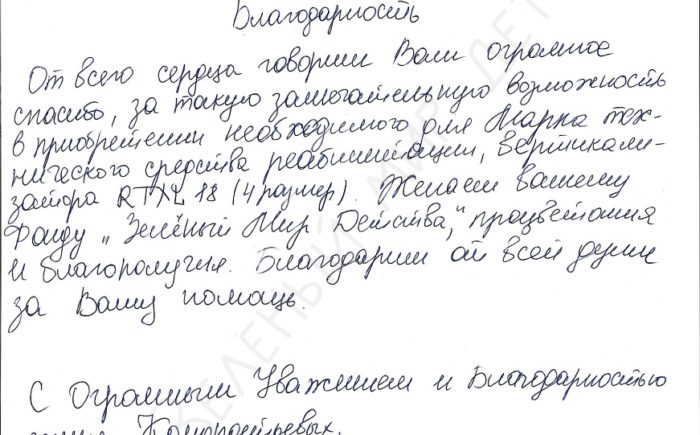 Благодарность
От всего сердца говорим Вам огромное
спасибо, за такую замечательную возможность
в приобретении необходимого для Марка тех-
нического средства реабилитации, вертикали-
затора RTXL 18 (4 размер). Желаем вашему
Фонду „Зелёный Мир Детства," процветания
и благополучия. Благодарим от всей души
за Вашу помощь.
С Огромным Уважением и Благодарностью